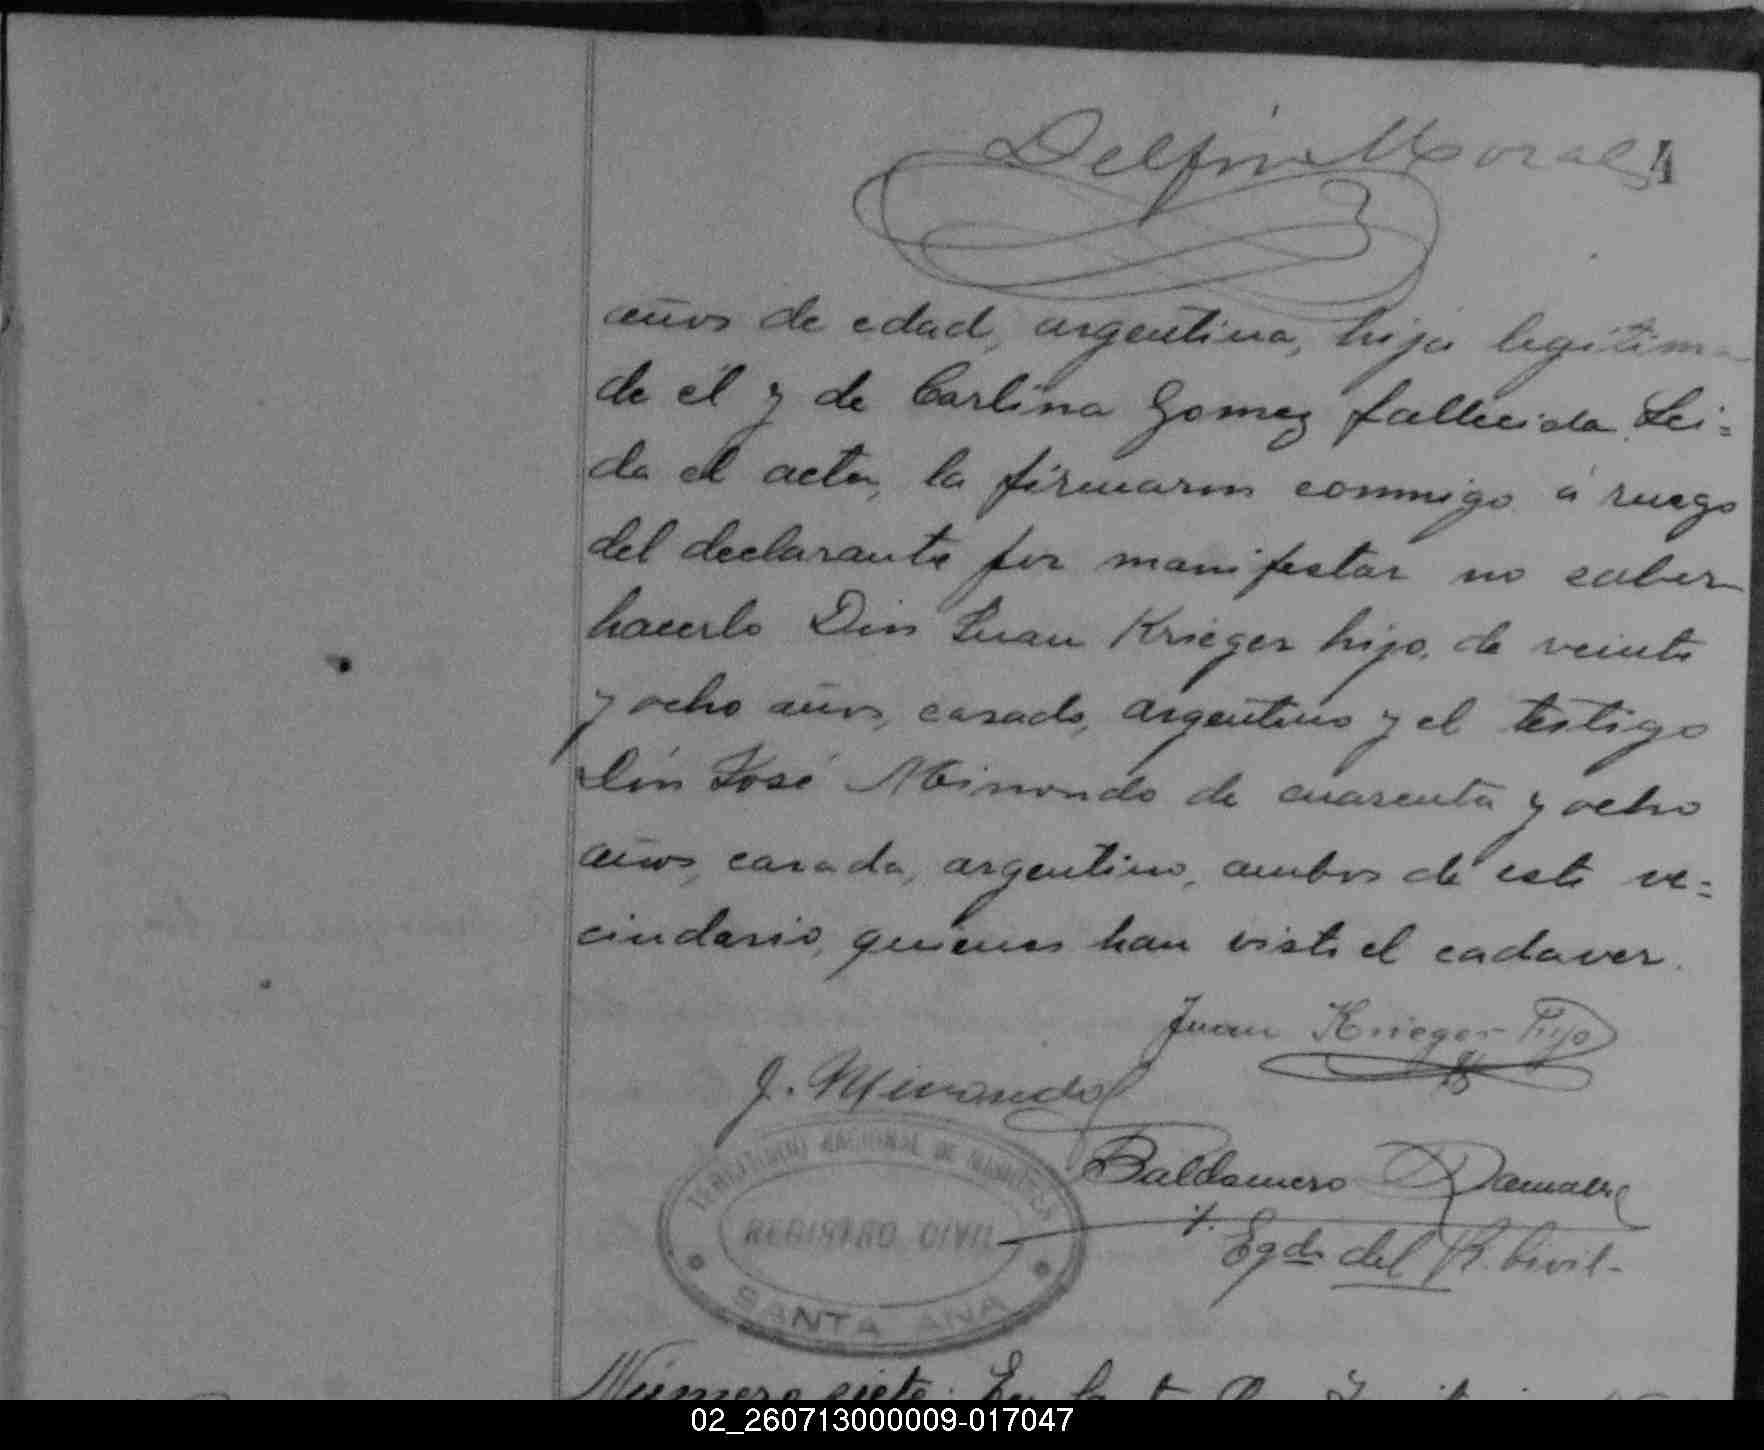 Delfin Morales
4
años de edad, argentina, hija legitima
de él y de Carlina Gomez fallecida. Lei=
da el acta, la firmaron conmigo á ruego
del declarante por manifestar no saber
hacerlo Don Juan Krieger hijo, de veinte
y ocho años, casado, argentino y el testigo
Don José Mirondo de cuarenta y ocho
años, casado, argentino, ambos de este ve=
cindario, quienes han visto el cadaver.
Juan Krieger Hijo
J. Mirondo
Baldomero
Egdo del R. Civil-
TERRITORIO NACIONAL DE MISIONES
REGISTRO CIVIL
SANTA ANA
Número siete: En
02_260713000009-017047